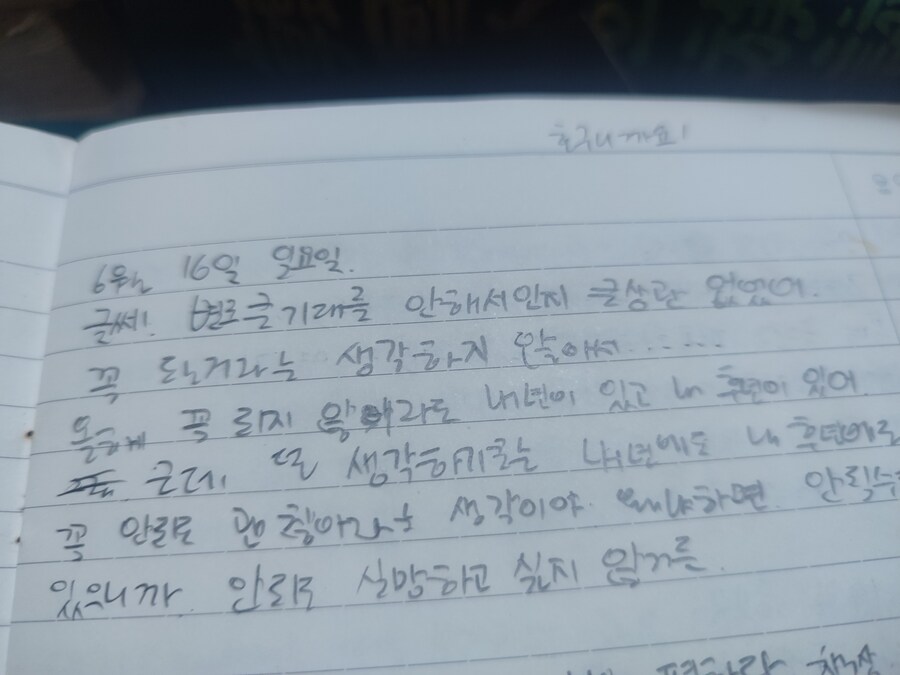 6월 16일 일요일.
글쎄! 별로 큰 기대를 안해서인지 큰상관 없었어.
꼭 된거라는 생각하지 않아서......
올해 꼭 되지 않아라도 내년이 있고 내 후년이 있어
근데, 또 생각하기로는 내년에도 내 후년에도
꼭 안되도 괜찮아라는 생각이야. 왜냐하면. 안될수
있으니까. 안되도 실망하고 싶지 않거를.